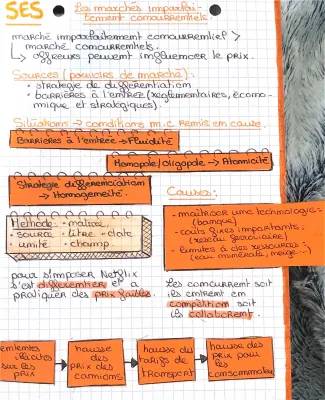 SES
Les marchés imparfai-
tement concurrentiels
marché imparfaitement concurrentiel >
marché concurrentiels.
↳ offreurs peuvent influencer le prix.
Sources (pouvoirs de marché) :
• strategie de differentiation
• barrières à l'entrée (reglementaires, écono-
mique et stratégiques).
Situations → conditions m.c remis en cause.
Barrières à l'entrée → Fluidité
Monopole/oligopole → Atomicité
Strategie differenciation
→ Homogeneité
Causes :
Methode - matrice
• source • titre • date
• unité • champ
- maitriser une technologie :
(banque)
- coûts fixes importants :
(reseau ferroviaire)
- limités à des ressources :
(eau minerale, neige...)
pour s'imposer Netflix
s'est differentier et a
pratiquer des prix faibles.
Les concurrent soit
ils entrent en
compétition soit
ils collaborent.
ententes
illicites
sur les
prix
hausse
des
prix des
camions
hausse du
tarifs de
transport
hausse des
prix pour
les
consommateur